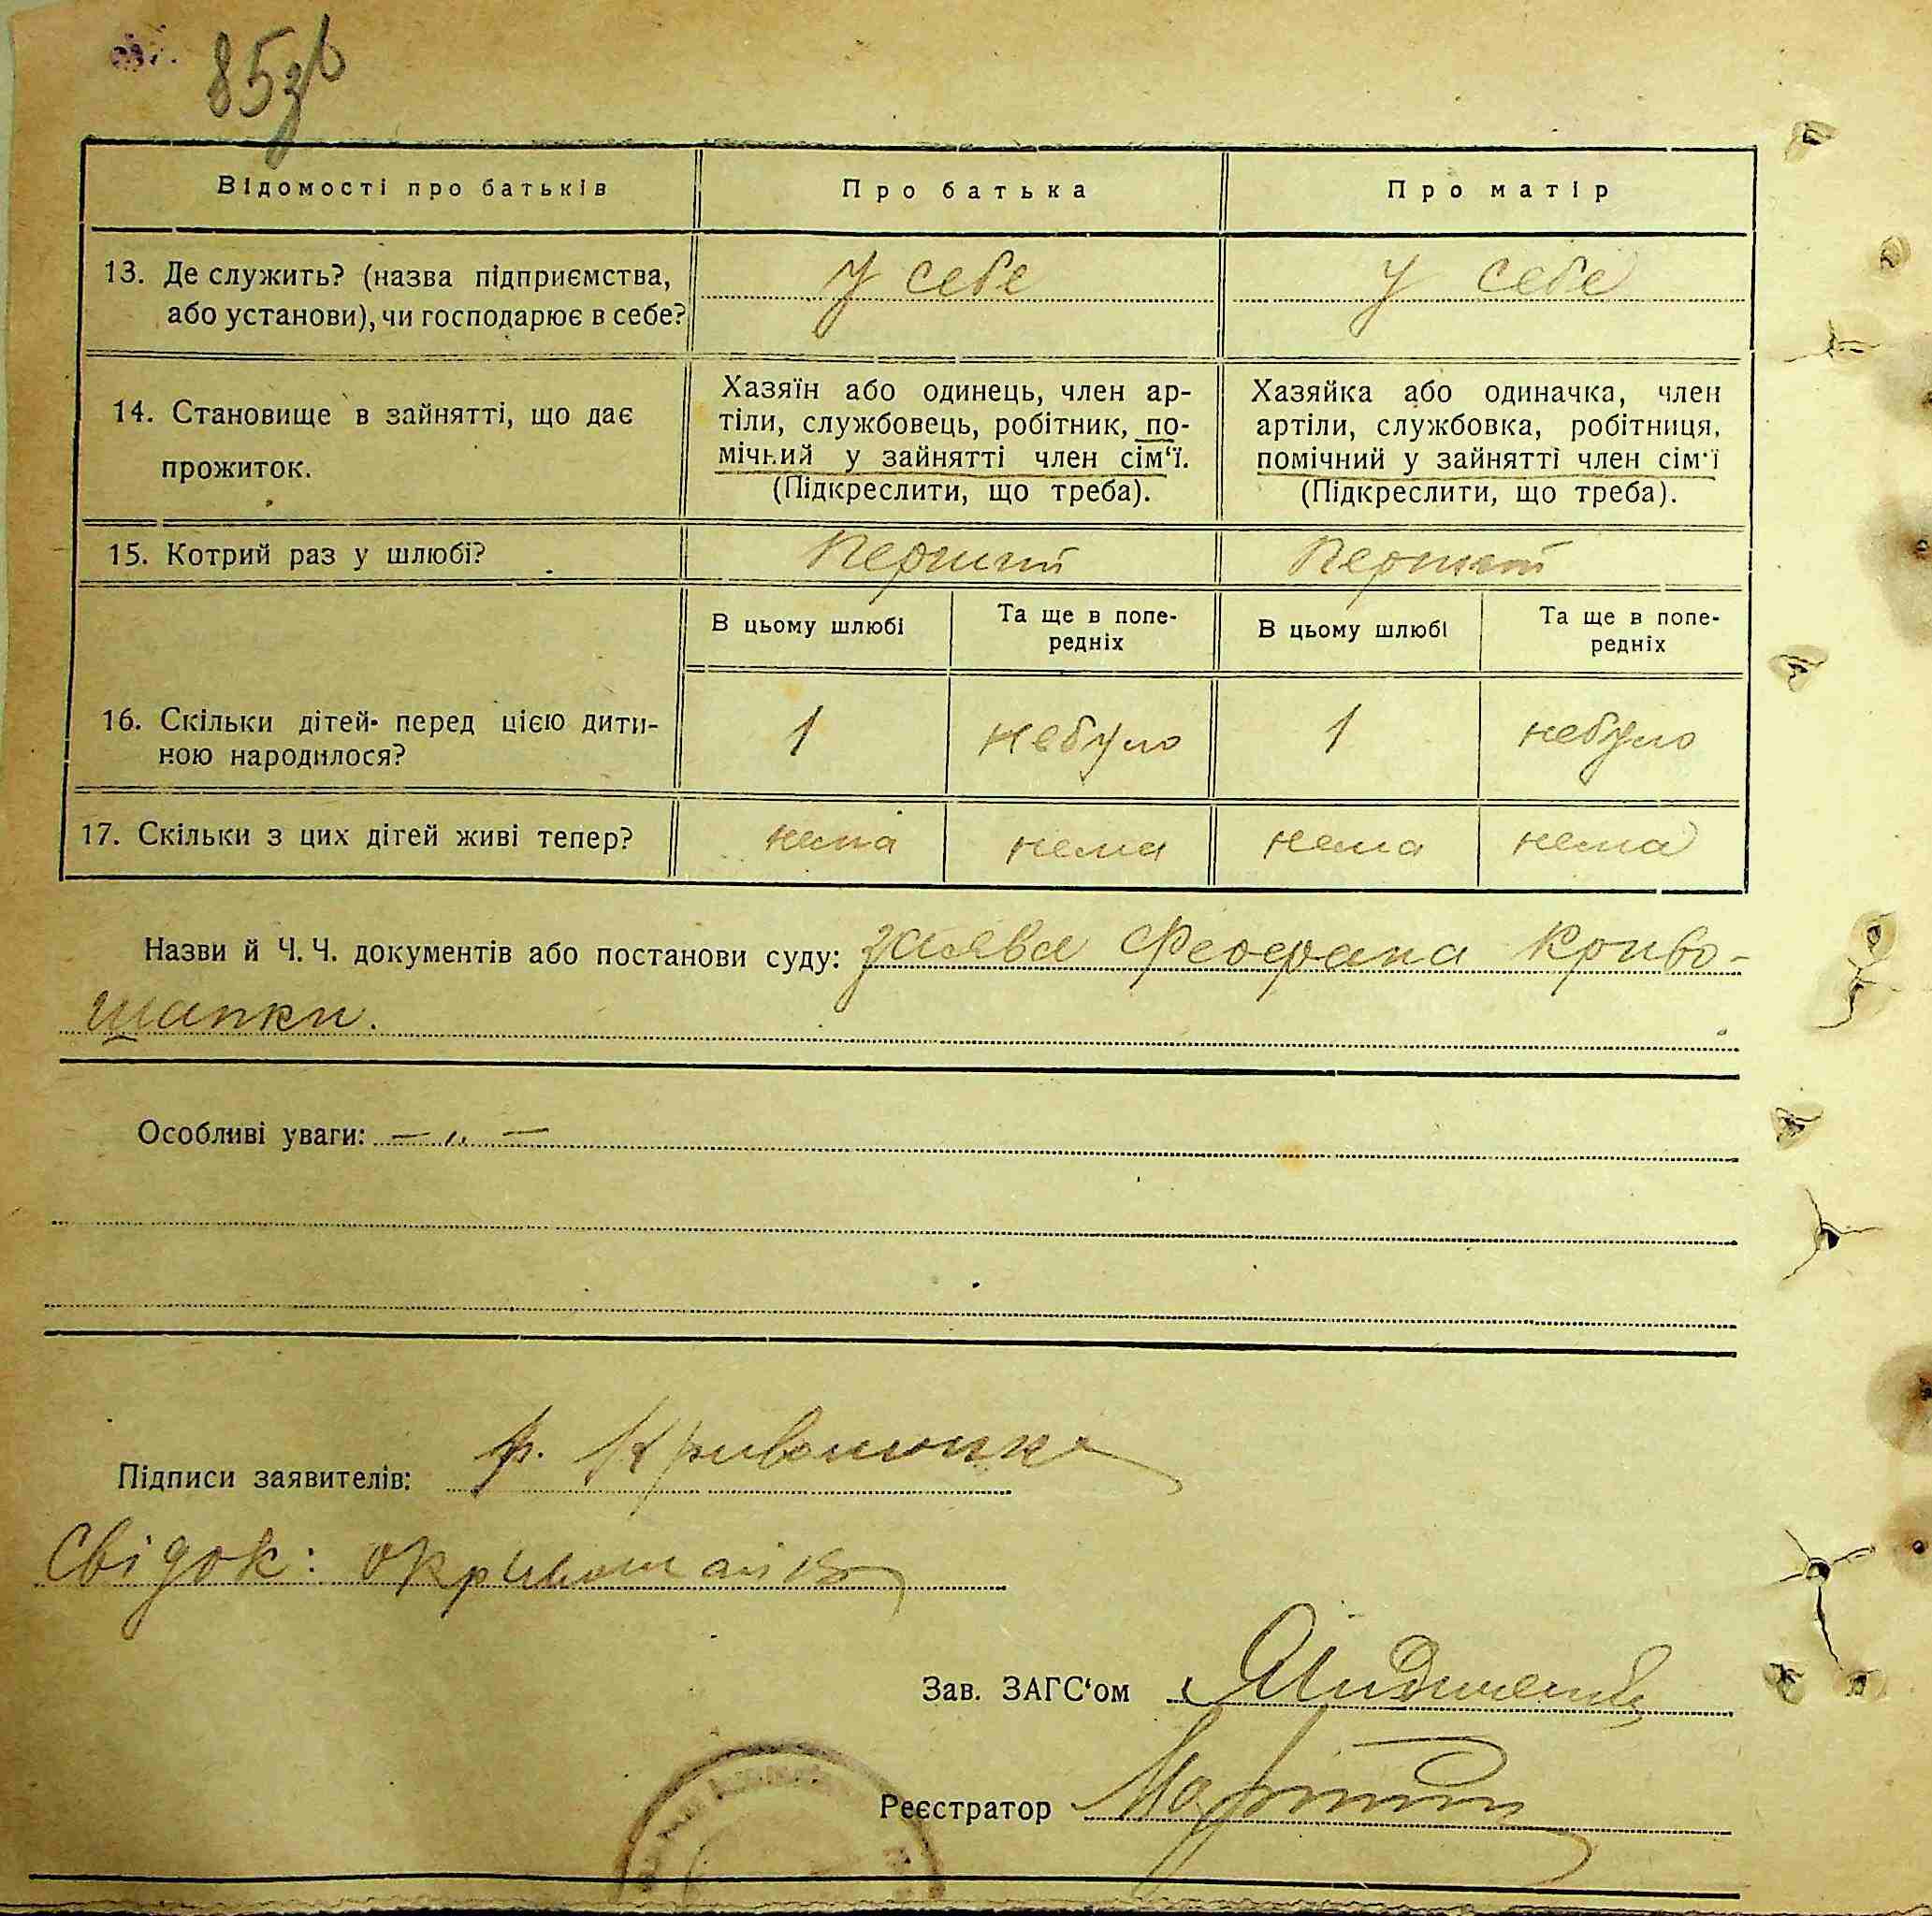 85зв
Відомості про батьків
Про батька
Про матір
13. Де служить? (назва підприємства,
або установи), чи господарює в себе?
у себе
у себе
14. Становище в зайнятті, що дає
прожиток.
Хазяїн або одинець, член ар-
тіли, службовець, робітник, по-
мічний у зайнятті член сім'ї.
(Підкреслити, що треба).
Хазяйка або одиначка, член
артіли, службовка, робітниця,
помічний у зайнятті член сім'ї
(Підкреслити, що треба).
15. Котрий раз у шлюбі?
перший
перший
В цьому шлюбі
Та ще в попе-
редніх
В цьому шлюбі
Та ще в попе-
редніх
16. Скільки дітей перед цією дити-
ною народилося?
1
небуло
1
небуло
17. Скільки з цих дітей живі тепер?
нема
нема
нема
нема
Назви й Ч. Ч. документів або постанови суду: заява Феофана Криво-
шапки.
Особливі уваги: — „ —
Підписи заявителів: Ф. Кривошапка
Свідок:
Зав. ЗАГС'ом
Реєстратор